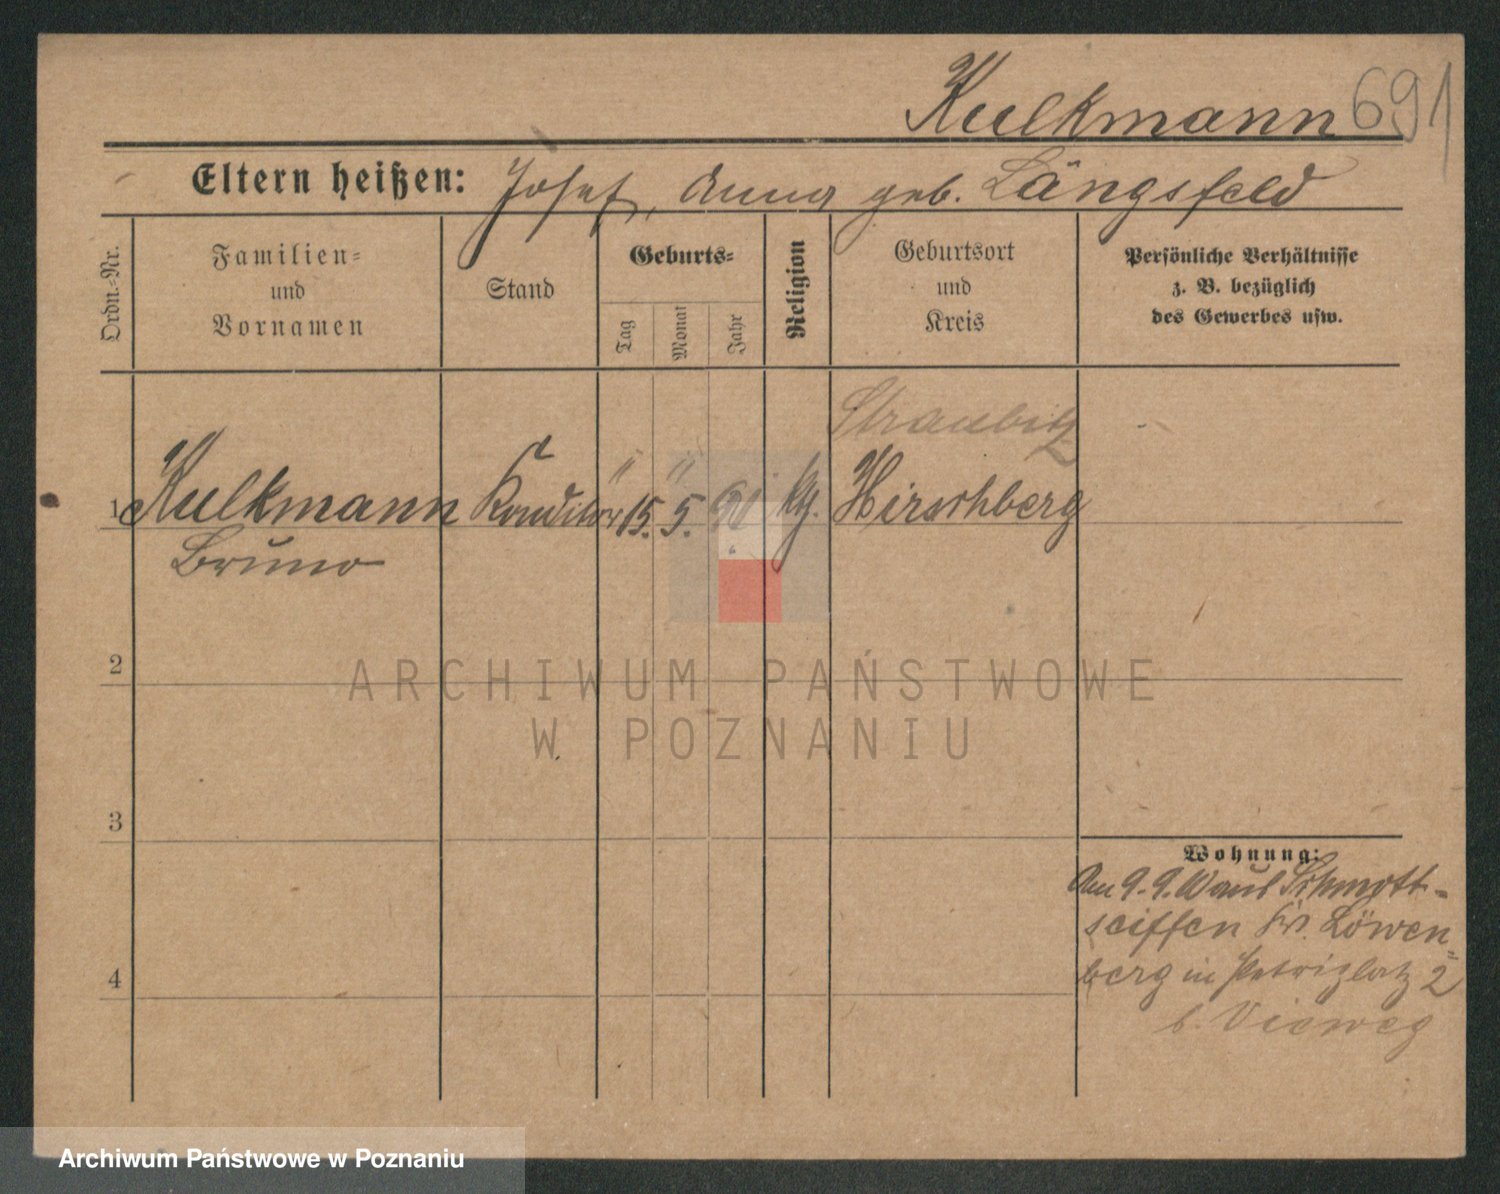 Kulkmann 691
Eltern heißen: Josef, Anna geb. Längsfeld
Ordn.-Nr.
Familien-
und
Vornamen
Stand
Geburts-
Tag
Monat
Jahr
Religion
Geburtsort
und
Kreis
Persönliche Verhältnisse
z. B. bezüglich
des Gewerbes usw.
Straubitz
1 Kulkmann Konditor 15. 5. kth. Hirschberg
Bruno
2
ARCHIWUM PAŃSTWOWE
W POZNANIU
3
Wohnung:
Am 9.9. Schmott-
seiffen Kr. Löwen-
berg in Petriplatz 2
b. Vieweg
4
Archiwum Państwowe w Poznaniu